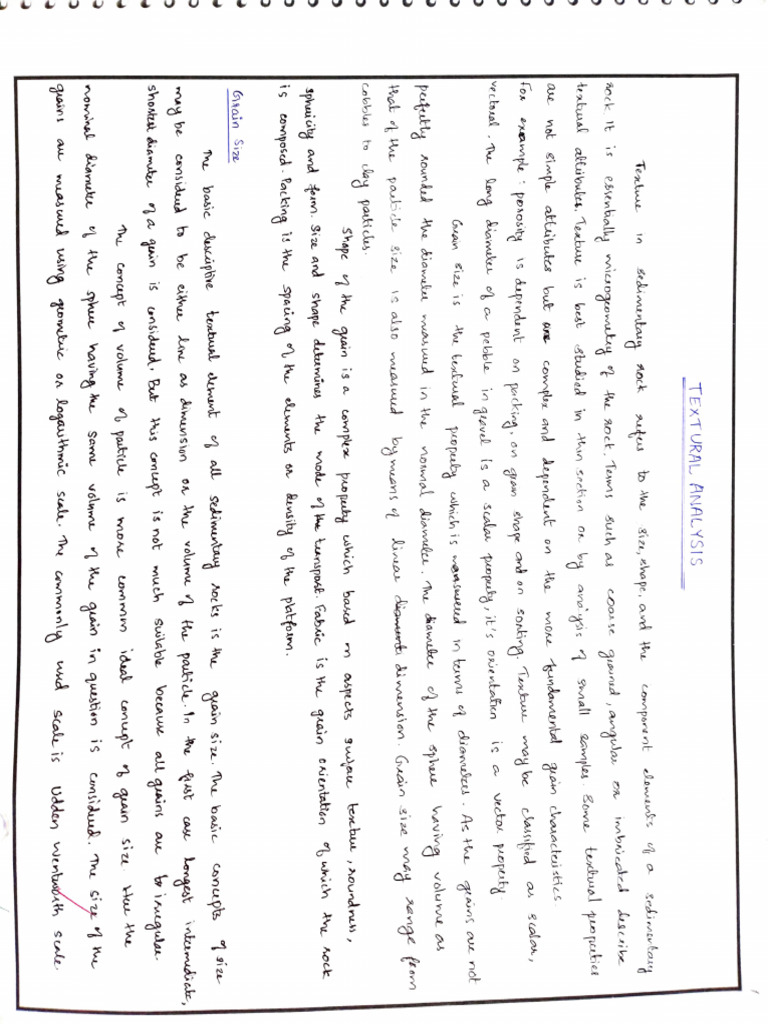 TEXTURAL ANALYSIS
Texture in sedimentary rock refers to the size, shape, and the component elements of a sedimentary
rock It is essentially microgeometry of the rock. Terms such as coarse grained, angular or imbricated describe
textural attributes. Texture is best studied in thin section or by analysis of small samples. Some textural properties
are not simple attributes but are complex and dependent on the more fundamental grain characteristics.
For example : porosity is dependent on packing, on grain shape and on sorting. Texture may be classified as scalar,
vectoral. The long diameter of a pebble in gravel is a scalar property, it's orientation is a vector property.
Grain size is the textural property which is measured in terms of diameter. As the grains are not
perfectly rounded the diameter measured in the normal diameter. The diameter of the sphere having volume as
that of the particle size is also measured by means of linear dimension. Grain size may range from
cobbles to clay particles.
Shape of the grain is a complex property which based on aspects surface texture, roundness,
sphericity and form. Size and shape determines the mode of the transport. Fabric is the grain orientation of which the rock
is composed. Packing is the spacing of the elements or density of the platform.
Grain Size
The basic descriptive textural element of all sedimentary rocks is the grain size. The basic concepts of size
may be considered to be either line as dimension or the volume of the particle. In the first case longest intermediate,
shortest diameter of a grain is considered. But this concept is not much suitable because all grains are to irregular.
The concept of volume of particle is more common ideal concept of grain size. Here the
nominal diameter of the sphere having the same volume of the grain in question is considered. The size of the
grains are measured using geometric or logarithmic scale. The commonly used scale is Udden Wentworth scale.